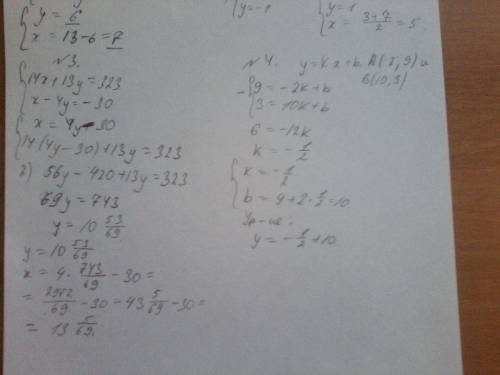 { y = 6
{ x = 13-6 = 7
{ y = -1
{ y = 1
{ x = (3+7)/2 = 5
№3.
{ 14x+13y = 323
{ x-4y = -30
{ x = 4y-30
{ 14(4y-30)+13y = 323
2) 56y-420+13y = 323
69y = 743
y = 10 53/69
y = 10 53/69
x = 4 · 743/69 - 30 =
= 2972/69 - 30 = 43 5/69 - 30 =
= 13 5/69.
№4. y = kx+b. A(-2,9) и
B(10,3)
- { 9 = -2k+b
{ 3 = 10k+b
6 = -12k
k = -1/2
{ k = -1/2
{ b = 9+2·1/2 = 10
Ур-ие:
y = -1/2+10